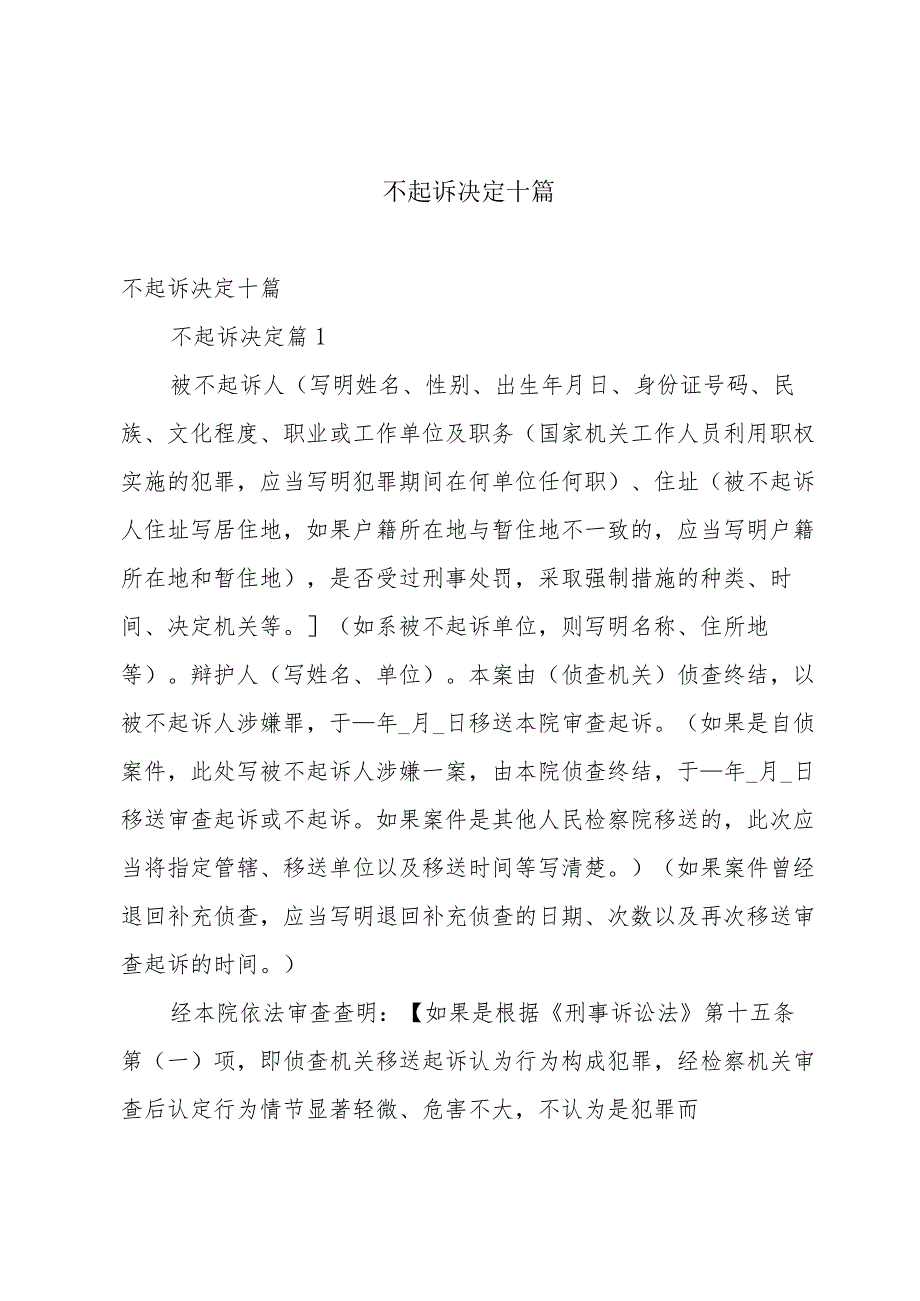 不起诉决定十篇
不起诉决定十篇
不起诉决定篇1
被不起诉人（写明姓名、性别、出生年月日、身份证号码、民
族、文化程度、职业或工作单位及职务（国家机关工作人员利用职权
实施的犯罪，应当写明犯罪期间在何单位任何职）、住址（被不起诉
人住址写居住地，如果户籍所在地与暂住地不一致的，应当写明户籍
所在地和暂住地），是否受过刑事处罚，采取强制措施的种类、时
间、决定机关等。］（如系被不起诉单位，则写明名称、住所地
等）。辩护人（写姓名、单位）。本案由（侦查机关）侦查终结，以
被不起诉人涉嫌罪，于—年_月_日移送本院审查起诉。（如果是自侦
案件，此处写被不起诉人涉嫌一案，由本院侦查终结，于—年_月_日
移送审查起诉或不起诉。如果案件是其他人民检察院移送的，此次应
当将指定管辖、移送单位以及移送时间等写清楚。）（如果案件曾经
退回补充侦查，应当写明退回补充侦查的日期、次数以及再次移送审
查起诉的时间。）
经本院依法审查查明：【如果是根据《刑事诉讼法》第十五条
第（一）项，即侦查机关移送起诉认为行为构成犯罪，经检察机关审
查后认定行为情节显著轻微、危害不大，不认为是犯罪而